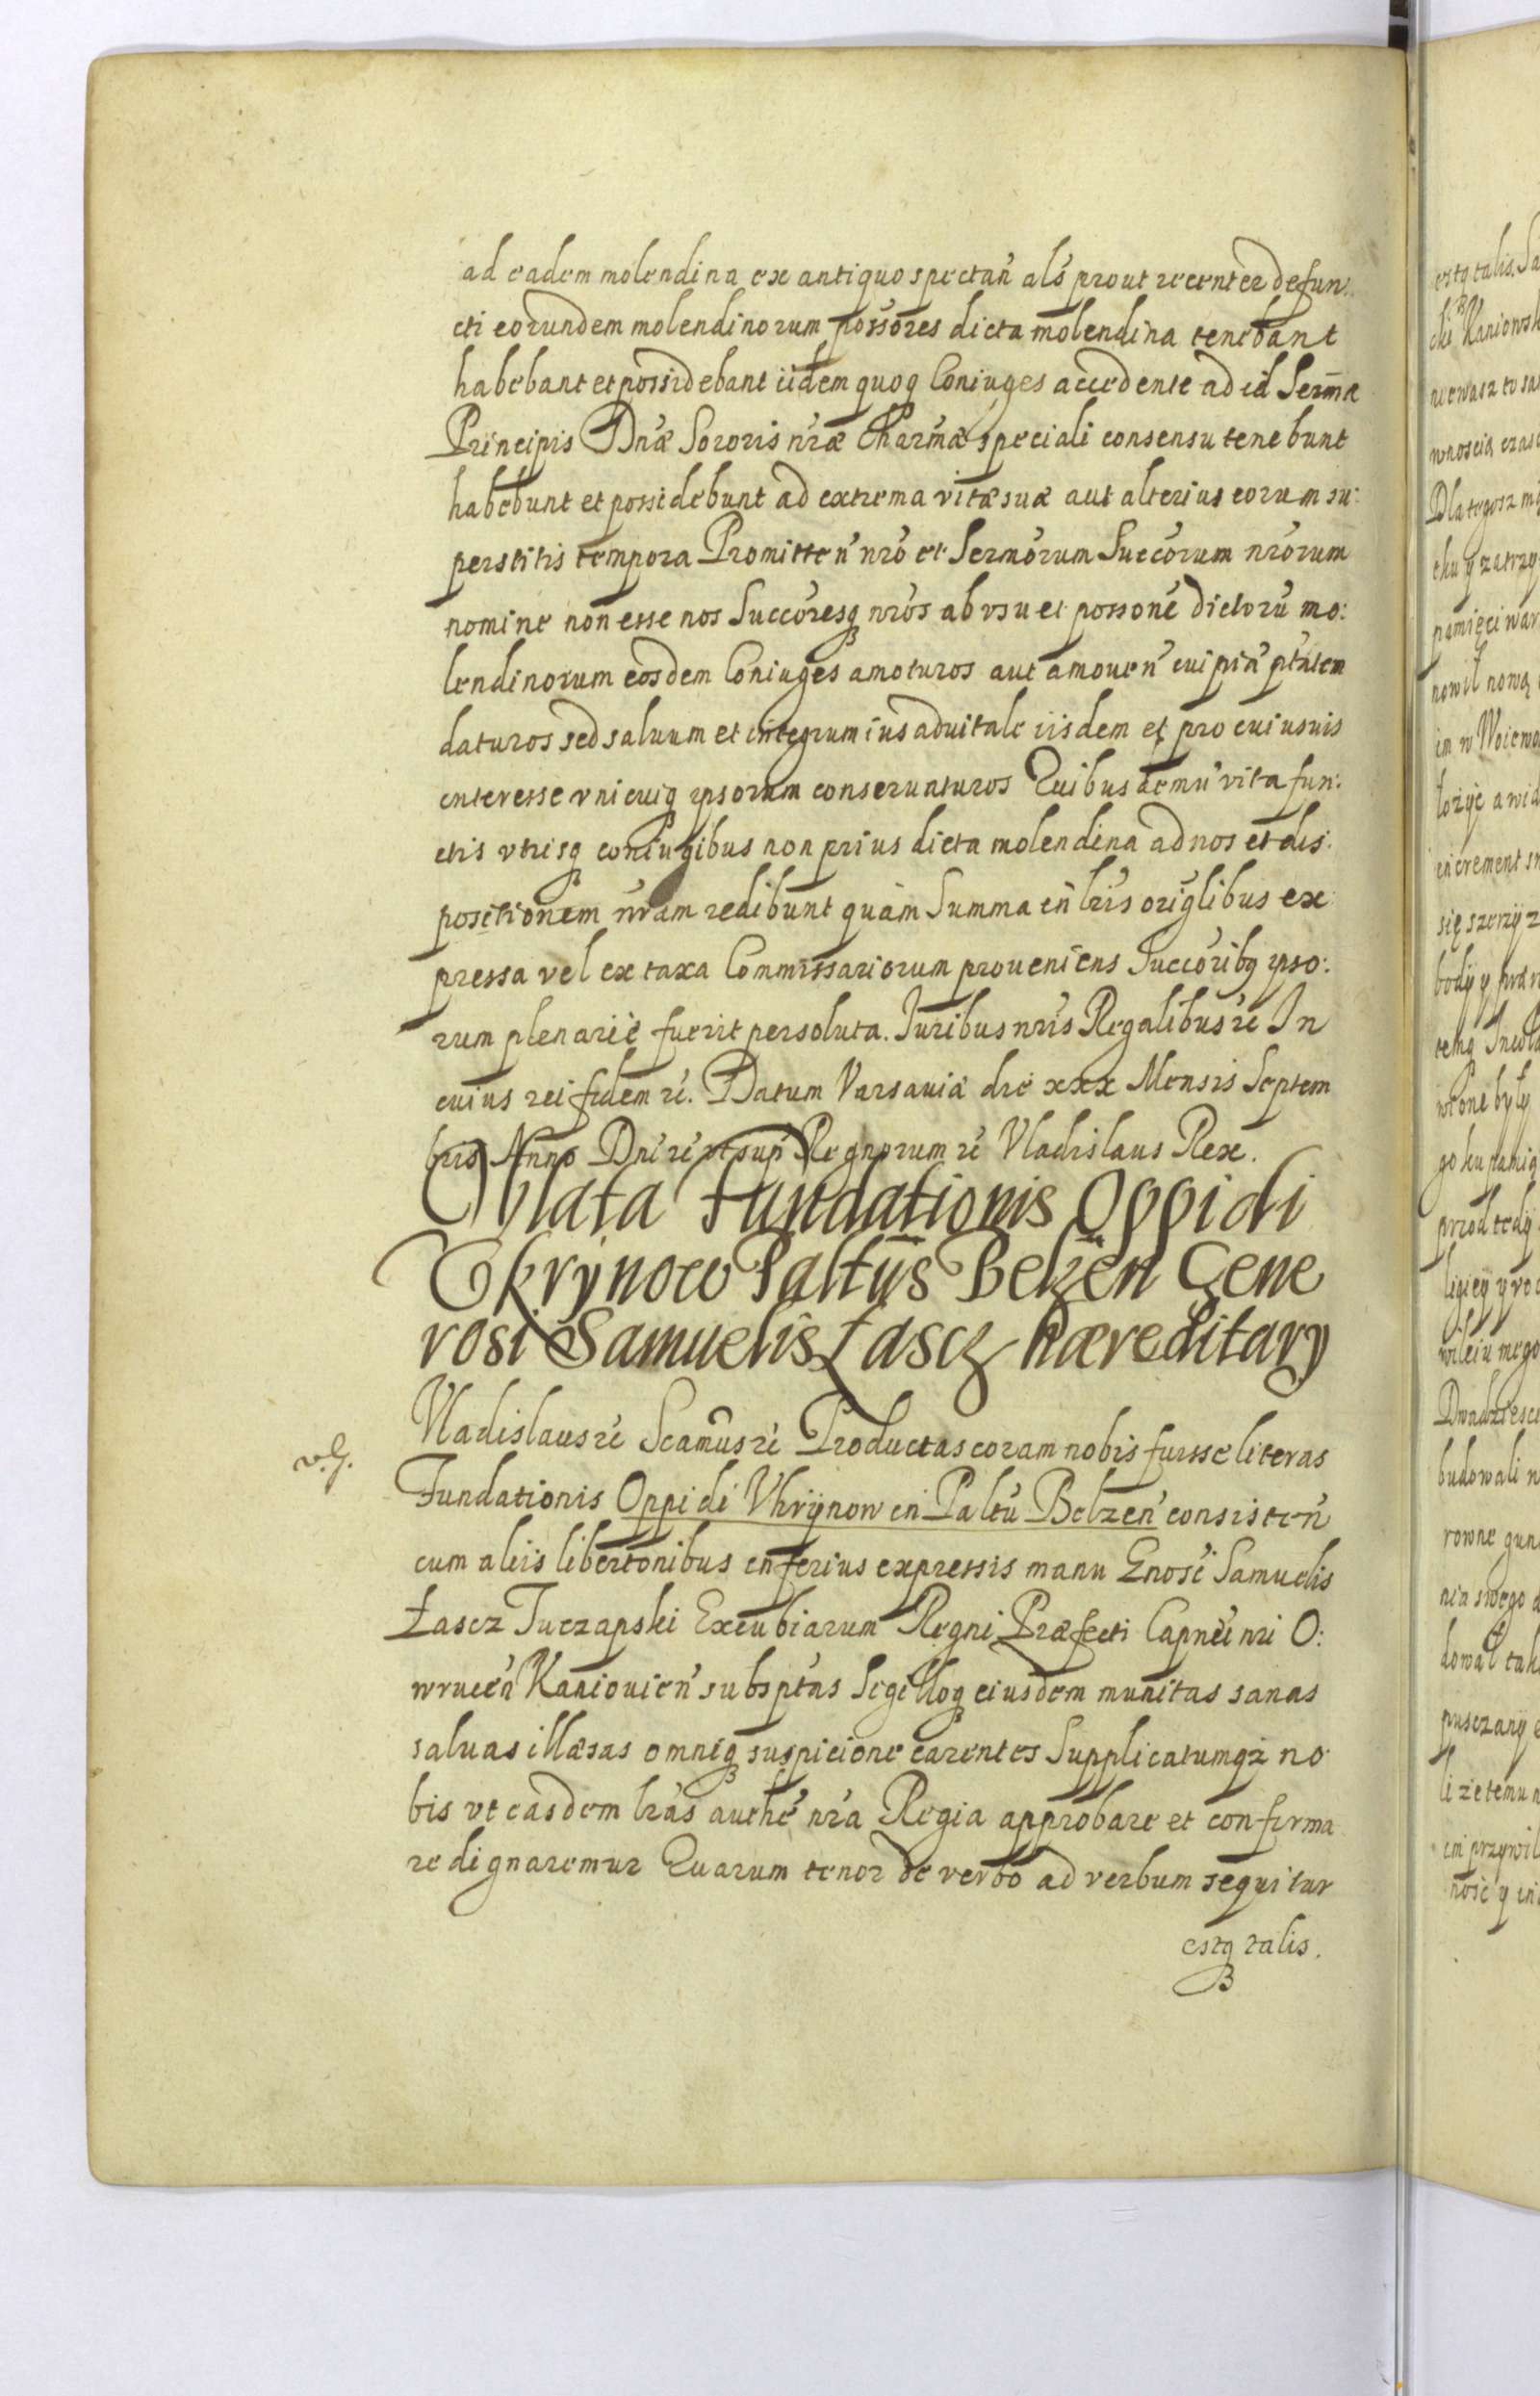 ad eadem molendina ex antiquo spectan̄ als prout recenter defun:
cti eorundem molendinorum possores dicta molendina tenebant
habebant et possidebant iidem quoq Coniuges accedente ad id Serm̄æ
Principis Dn̄æ Sororis nr̄æ Charmæ speciali consensu tenebunt
habebunt et possidebunt ad extrema vitæ suæ aut alterius eorum su:
perstitis tempora Promitten̄ nr̄o et Sermorum Succorum nr̄orum
nomine non esse nos Succoresq nr̄os ab vsu et possone dictorū mo:
lendinorum eosdem Coniuges amoturos aut amouen̄ cuipiā ptatem
daturos sed saluum et integrum ius aduitale iisdem et pro cuiusuis
interesse vnicuiq ipsorum conseruaturos Quibus demū vita fun:
ctis vtrisq coniugibus non prius dicta molendina ad nos et dis:
positionem nr̄am redibunt quàm Summa in lr̄is origlibus ex
pressa vel ex taxa Commissariorum proueniens Succoribq ipso:
rum plenariè fuerit persoluta. Iuribus nr̄is Regalibus rē In
cuius rei fidem rē. Datum Varsauiæ die xxx Mensis Septem
bris Anno Dn̄i rē vt sup̄ Regnorum rē Vladislaus Rex.
Oblata Fundationis Oppidi
Vkrynow Paltus Belzen Gene
rosi Samuelis Łascz hæreditary
Vladislaus rē Scamus rē Productas coram nobis fuisse literas
Fundationis Oppidi Vhrÿnow in Paltū Belzen̄ consisten̄
cum aliis libertonibus inferius expressis manu Gnosi Samuelis
Łascz Tuczapski Excubiarum Regni Præfecti Capnei nri O:
wrucen̄ Kaniouien̄ subsptas Sigilloq eiusdem munitas sanas
saluas illæsas omniq suspicione carentes Supplicatumq; no
bis vt easdem lr̄as authē nr̄a Regia approbare et confirma
re dignaremur Quarum tenor de verbo ad verbum sequitur
estq talis.